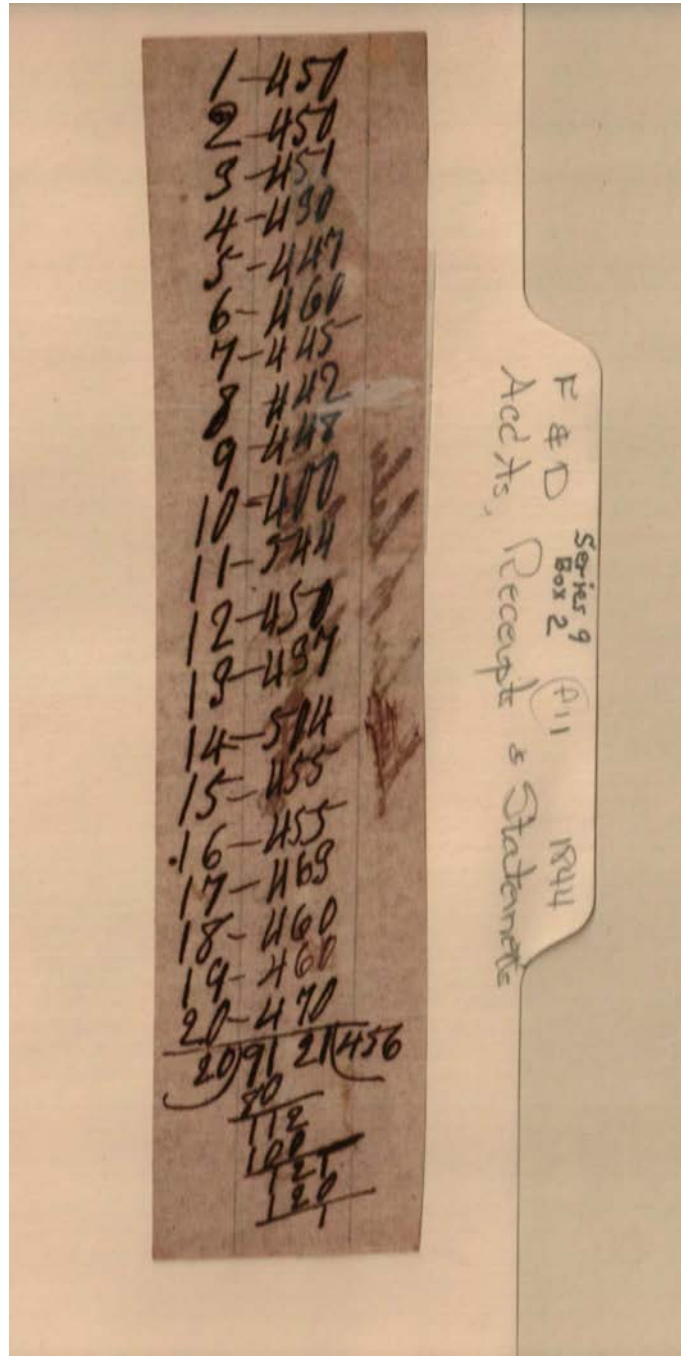 1-450
2-450
3-451
4-430
5-447
6-460
7-445
8 442
9-448
10-400
11-544
12-450
13-437
14-504
15-455
.16-455
17-463
18-460
19-460
20-470
20)9121(456
80
112
100
121
120
1
Series 9
Box 2
F & D A11 1844
Acc'ts, Receipts & Statements